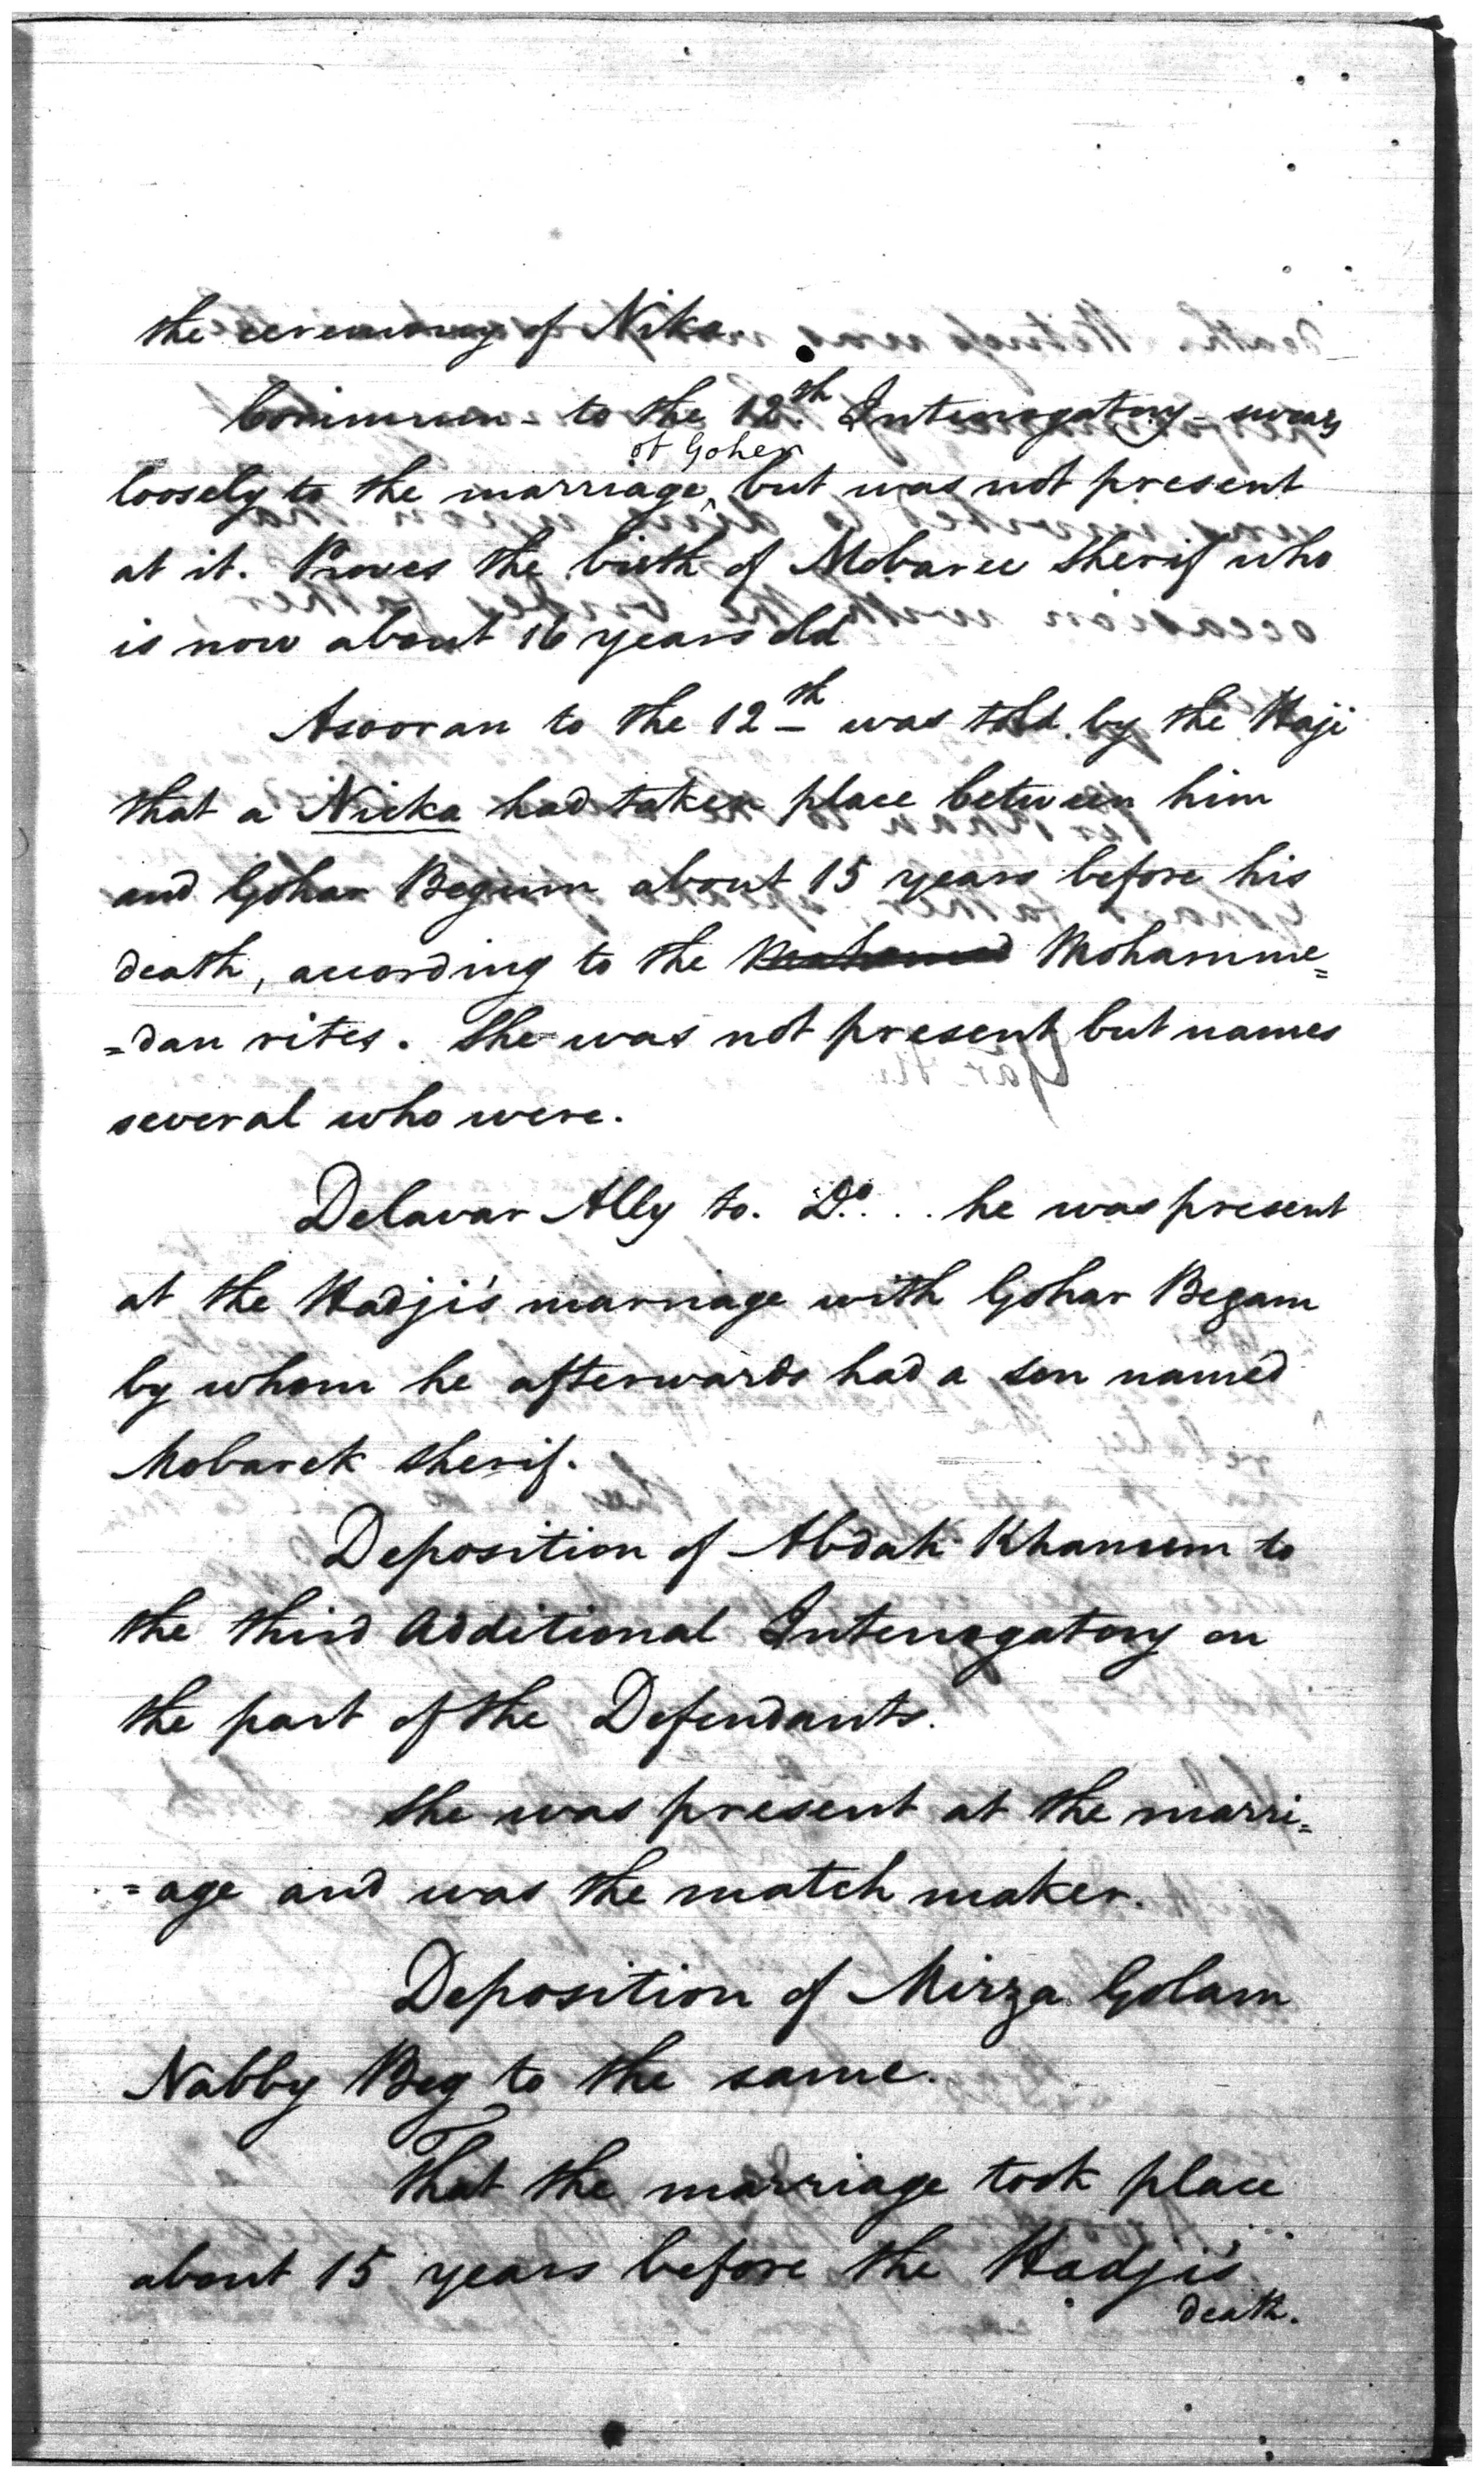 the ceremony of Nika.
Corimmun - to the 12th Interrogatory - swears
of Goher
loosely to the marriage, but was not present
at it. Proves the birth of Mobarec Sherif who
is now about 16 years old
Asooran to the 12th was told by the Haji
that a Nicka had taken place between him
and Gohar Begum about 15 years before his
death, acording to the Mohamme=
=dan rites. She was not present but names
several who were.
Delavar Ally to. Do. .. he was present
at the Hadji's marriage with Gohar Begam
by whom he afterwards had a son named
Mobarek Sherif.
Deposition of Abdak Khanum to
the third Additional Interrogatory on
the part of the Defendants.
She was present at the marri=
=age and was the match maker.
Deposition of Mirza Golam
Nabby Beg to the same.
That the marriage took place
about 15 years before the Hadji's
death.